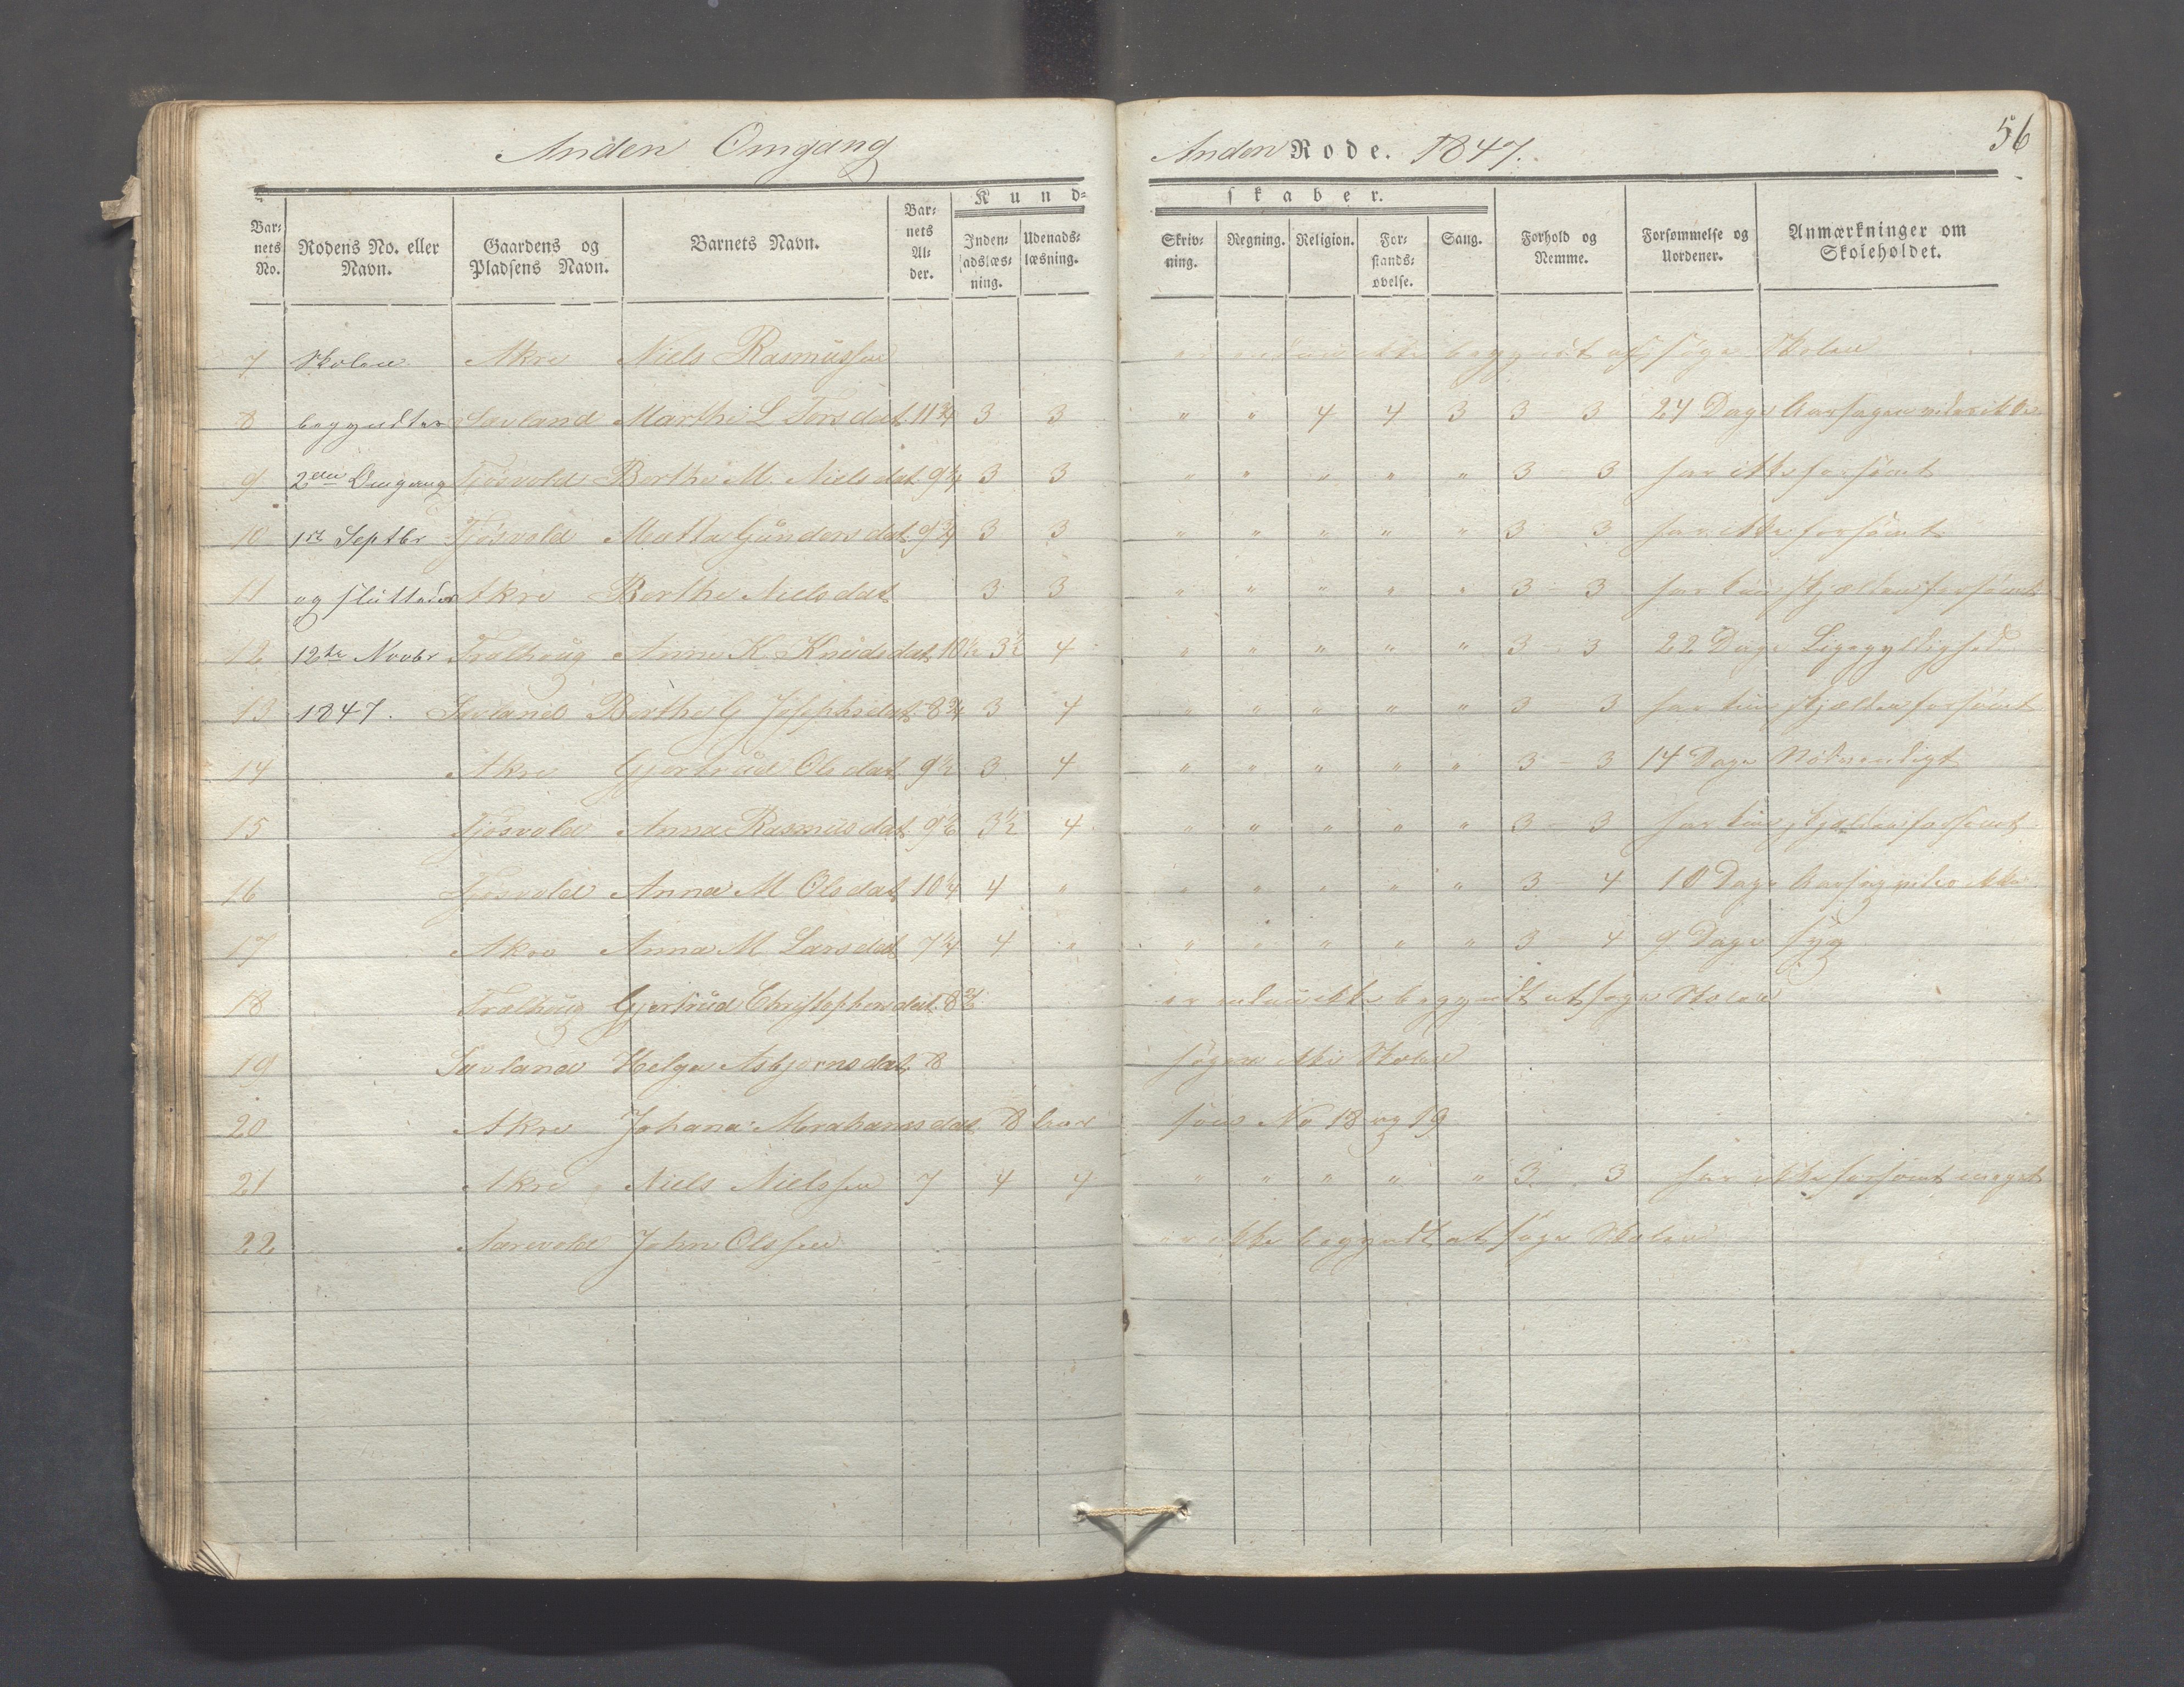 Anden Omgang
Anden Rode. 1847.
56
Kund-
skaber.
Bar-
nets
No.
Rodens No. eller
Navn.
Gaardens og
Pladsens Navn.
Barnets Navn.
Bar-
nets
Al-
der.
Inden-
adslæs-
ning.
Udenads-
læsning.
Skriv-
ning.
Regning.
Religion.
For-
stands-
øvelse.
Sang.
Forhold og
Nemme.
Forsømmelse og
Uordener.
Anmærkninger om
Skoleholdet.
7 Skolen Akre Niels Rasmussen er endnu ikke begyndt at søge Skolen
8 begyndtes Sævland Marthe L Torsdat. 11 3/4 3 3 " " 4 4 3 3 3 24 Dage Aarsagen vides ikke
9 2den Omgang Tjøsvold Berthe M. Nielsdat. 9 1/4 3 3 " " " " " 3 - 3 har ikke forsømt
10 1ste Septbr Tjøsvold Matta Gundersdat. 9 3/4 3 3 " " " " " 3 - 3 har ikke forsømt
11 og sluttedes Akre Berthe Nielsdat 3 3 " " " " " 3 - 3 har kun sjælden forsømt
12 12te Novbr Trælhoug Anne K Knudsdat. 10 1/2 3 1/2 4 " " " " " 3 - 3 22 Dage Ligegyldighed
13 1847. Sævland Berthe G Josephsdat. 8 3/4 3 4 " " " " " 3 3 har kun sjælden forsømt
14 Akre Gjertrud Olsdat. 9 1/2 3 4 " " " " " 3 - 3 14 Dage Nødvendigt
15 Tjøsvold Anna Rasmusdat. 9 1/2 3 1/2 4 " " " " " 3 - 3 har kun sjælden forsømt
16 Tjøsvold Anna M Olsdat. 10 1/4 4 " " " " " " 3 - 4 10 Dage Aarsag vides ikke
17 Akre Anna M Larsdat 7 1/4 4 " " " " " " 3 - 4 9 Dage syg
18 Trælhoug Gjertrud Christophersdat. 8 er endnu ikke begyndt at søge Skolen
19 Sævland Helga Asbjørnsdat. 8 søger ikke Skolen
20 Akre Johana Abrahamsdat 8 som No 18 og 19
21 Akre Niels Nielssen 7 4 4 " " " " " 3 - 3 har ikke forsømt meget
22 John Olssen er ikke begyndt at søge Skolen